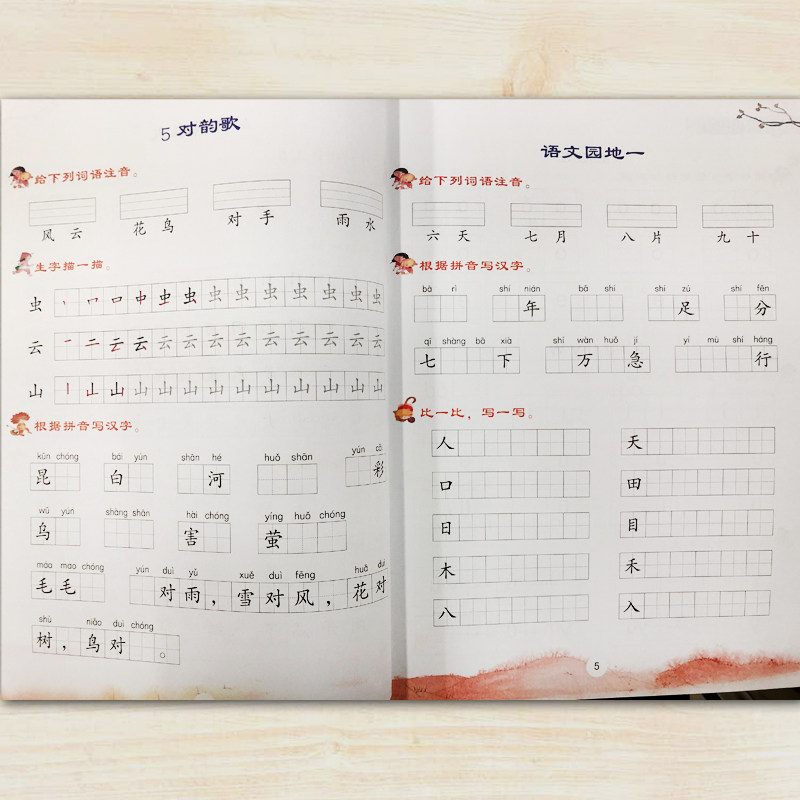 5 对韵歌
给下列词语注音。
风 云 花 鸟 对 手 雨 水
生字描一描。
虫 丶 口 口 中 虫 虫 虫 虫 虫 虫 虫 虫 虫
云 一 二 云 云 云 云 云 云 云 云 云 云 云
山 丨 山 山 山 山 山 山 山 山 山 山 山 山
根据拼音写汉字。
kūn chóng bái yún shān hé huǒ shān yún cǎ
昆 白 河 彩
wū yún shàng shān hài chóng yíng huǒ chóng
乌 害 萤
máo mao chóng yún duì yǔ xuě duì fēng huā duì
毛 毛 对 雨 , 雪 对 风 , 花 对
shù niǎo duì chóng
树 , 鸟 对 。
语文园地一
给下列词语注音。
六 天 七 月 八 片 九 十
根据拼音写汉字。
bā rì shí nián bā shí shí zú shí fēn
年 足 分
qī shàng bā xià shí wàn huǒ jí yì mù shí háng
七 下 万 急 行
比一比，写一写。
人 天
口 田
日 目
木 禾
八 入
5